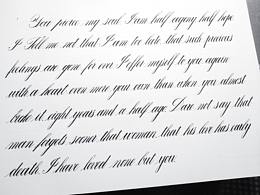 You pierce my soul. I am half agony, half hope
Tell me not that I am too late, that such precious
feelings are gone for ever. I offer myself to you again
with a heart even more your own than when you almost
broke it, eight years and a half ago. Dare not say that
man forgets sooner that woman, that his love has early
death. I have loved none but you.